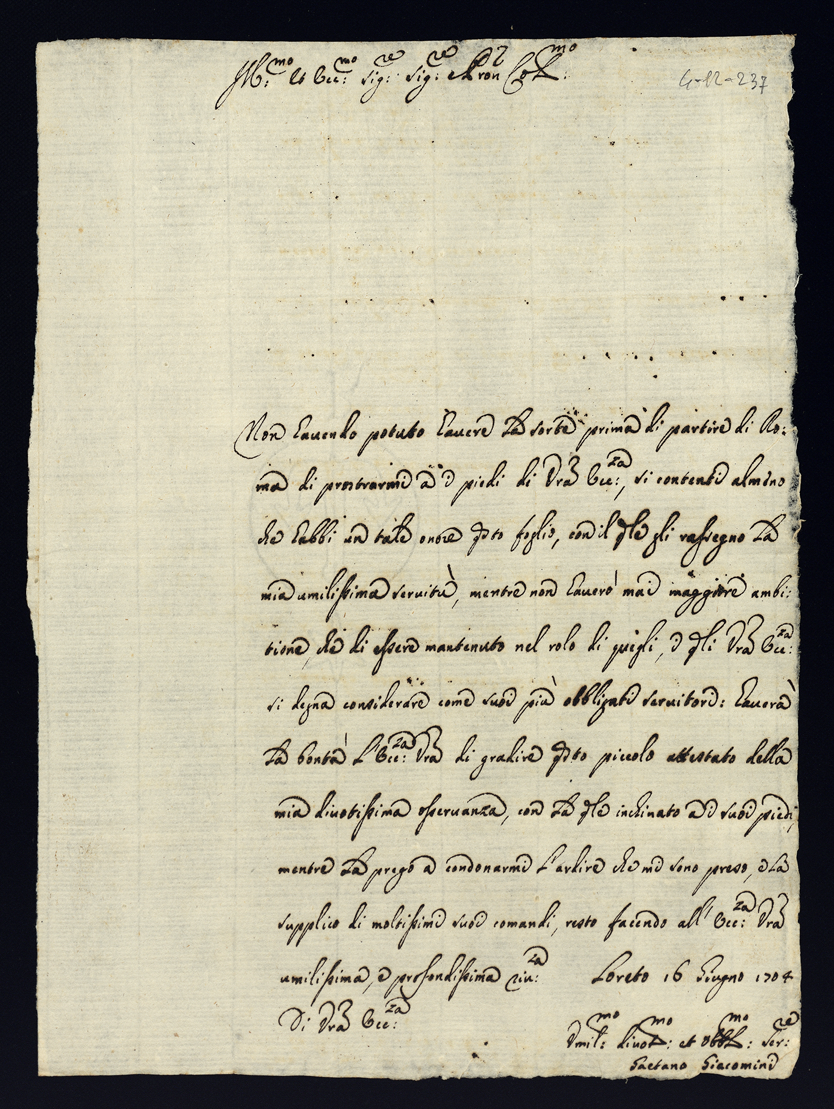 Ill:mo et Ecc:mo Sig:re Sig:re e Pron Col:mo
G-12-237
Non havendo potuto havere la sorte prima di partire di Ro:
ma di prostrarmi a i piedi di Vra Ecc:za, si contenti almeno
che habbi un tale onore qsto foglio, con il qle gli rassegno la
mia umilissima servitù, mentre non haverò mai maggiore ambi:
tione, che di essere mantenuto nel rolo di quegli, i qli Vra Ecc:za
si degna considerare come suoi più obbligati servitori: haverà
la bontà l'Ecc:za Vra di gradire qsto piccolo attestato della
mia divotissima osservanza, con la qle inchinato a i suoi piedi,
mentre la prego a condonarmi l'ardire che mi sono preso, e la
supplico di moltissimi suoi comandi, resto facendo all' Ecc:za Vra
umilissima, e profondissima riv:za Loreto 16 Giugno 1704
Di Vra Ecc:za
Umil:mo divot:mo et obbl:mo Ser:re
Gaetano Giacomini